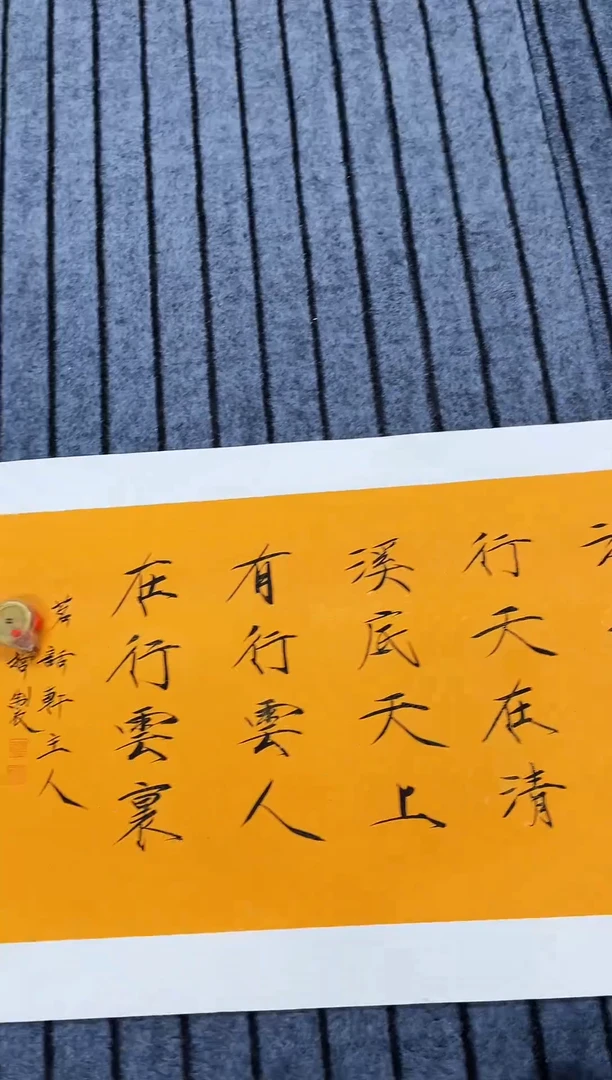 行天在清
溪底天上
有行雲人
在行雲裏
話軒主人
製